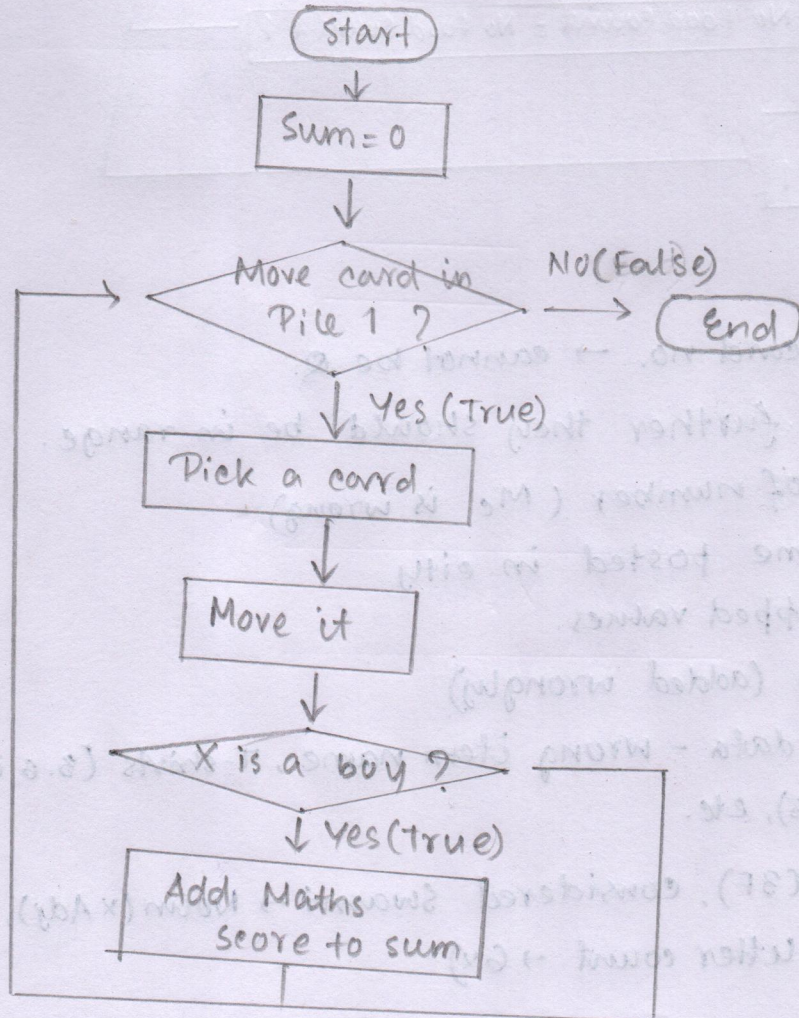 Start
Sum = 0
Move card in
Pile 1 ?
No (False)
End
Yes (True)
Pick a card
Move it
X is a boy ?
Yes (True)
Add Maths
score to sum